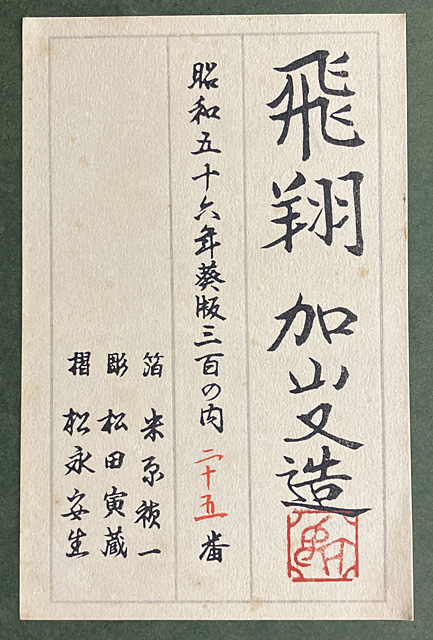 飛翔 加山又造
昭和五十六年葵版三百の内 二十五番
箔 米原被一
彫 松田寅蔵
摺 松永安生